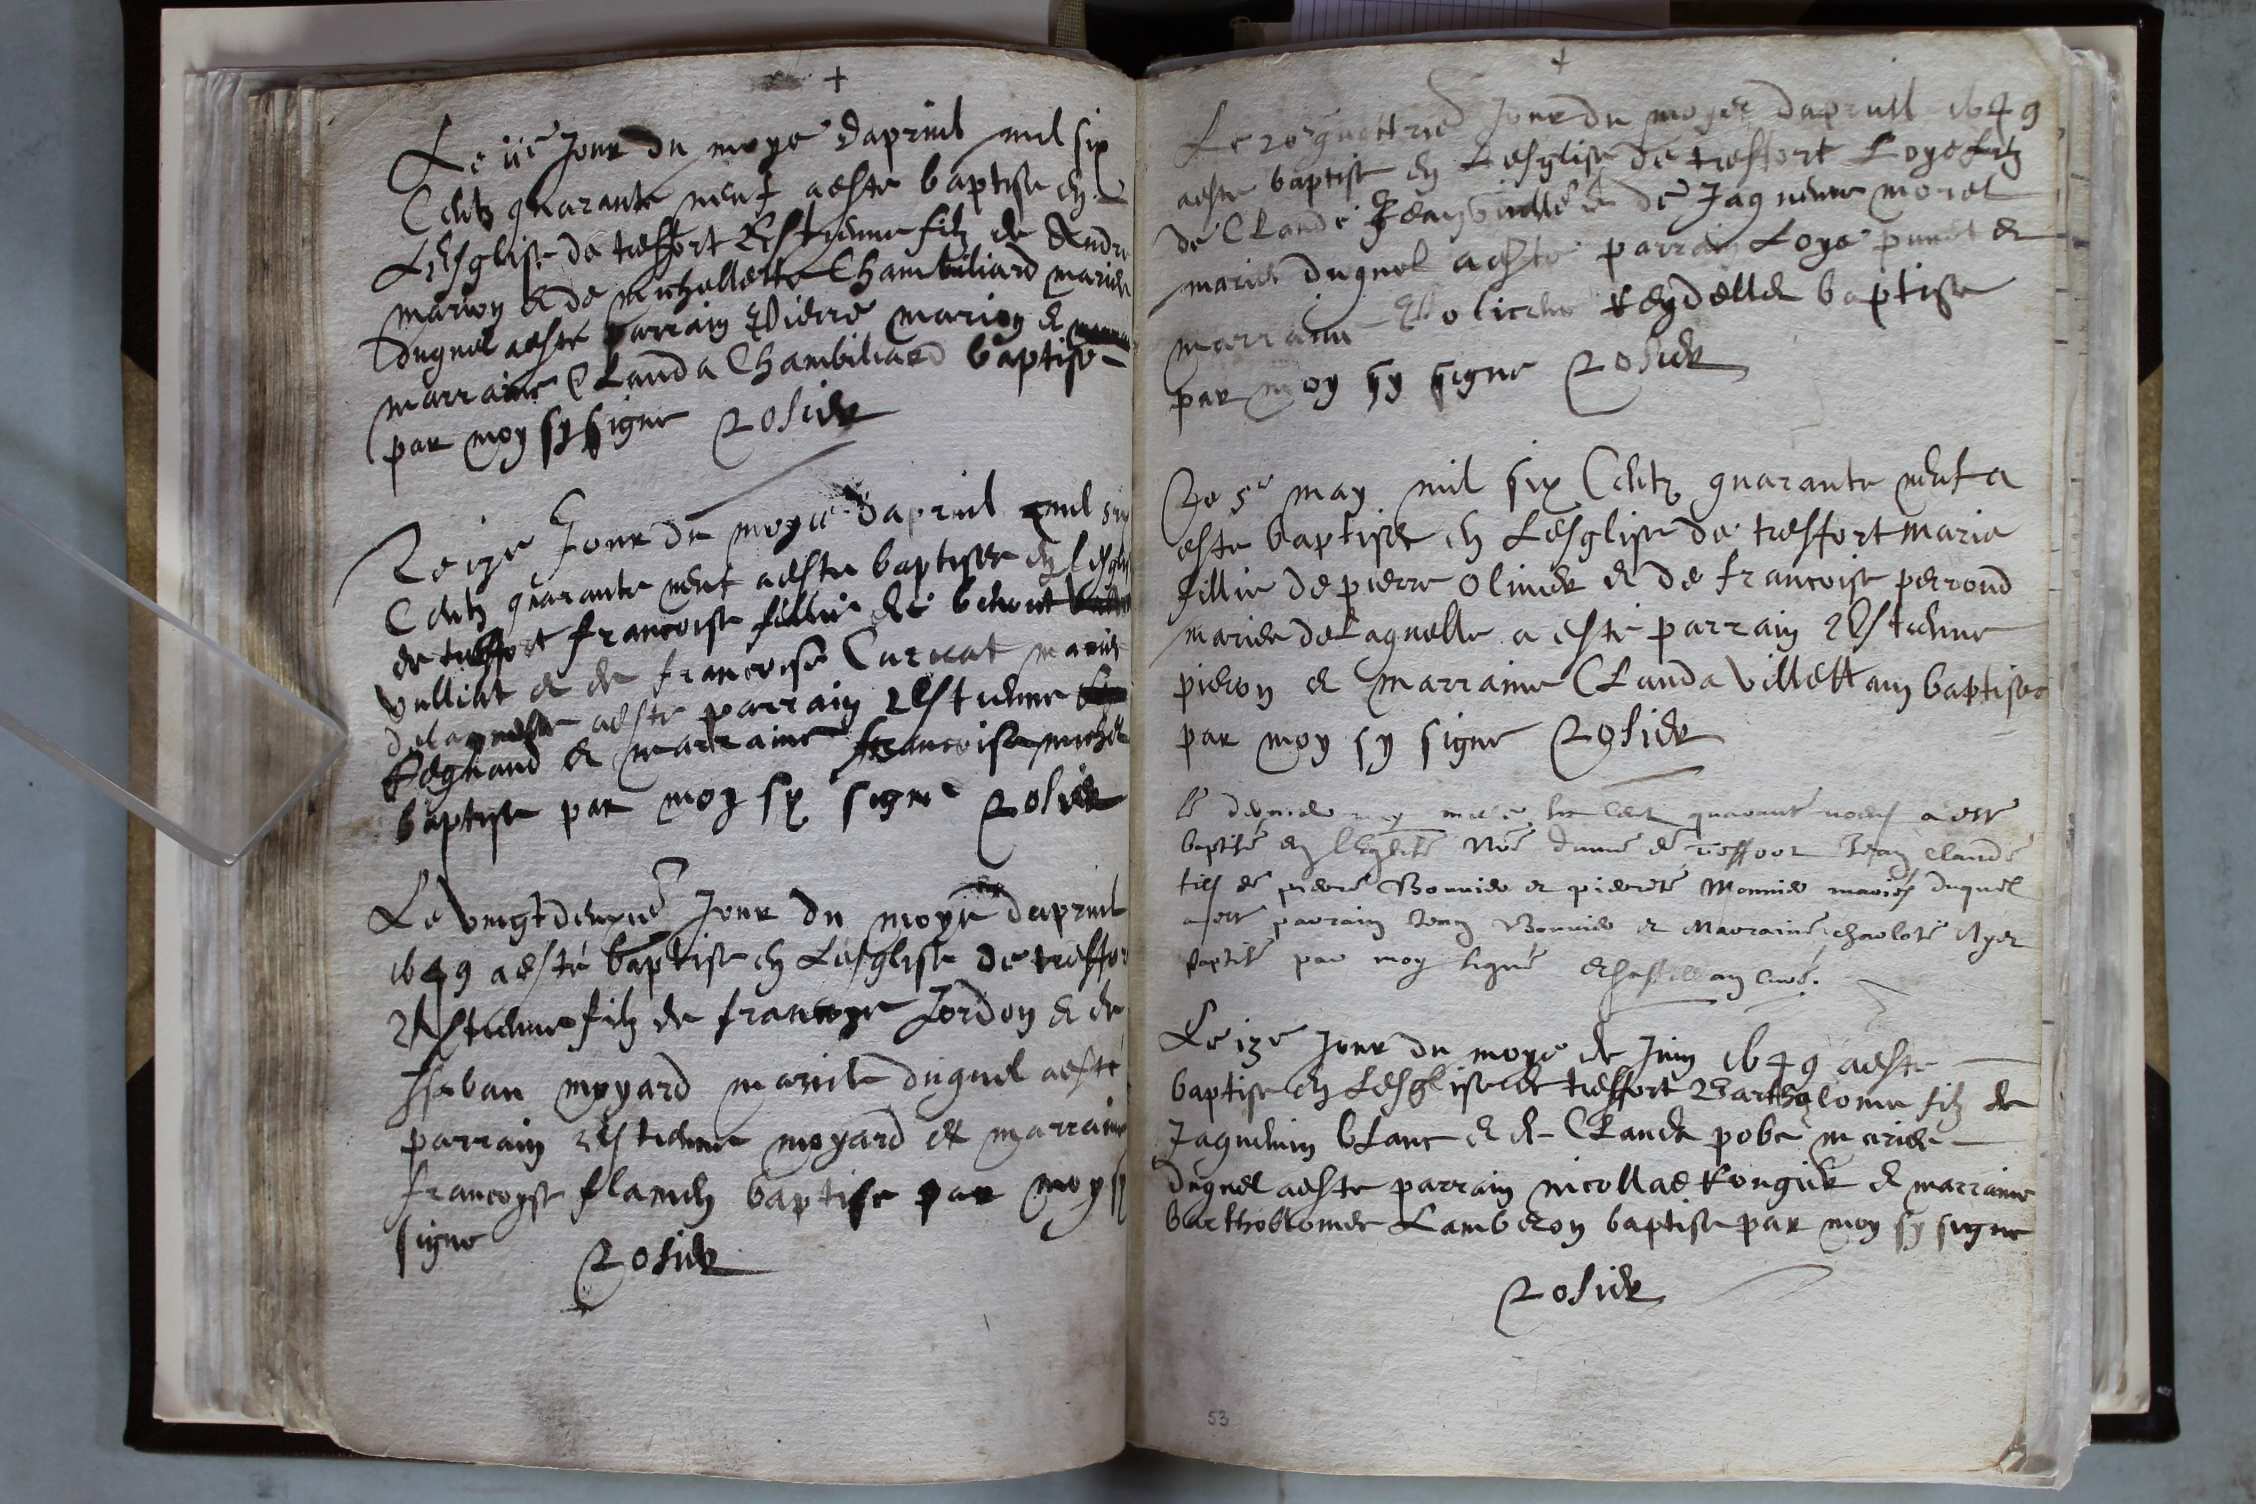 +
Le iie Jour du moys dapvril mil six
Centz quarante neuf a este baptise en
Lesglise de treffort Estienne filz de Andre
marion et de michellette Chambiliard maries
duquel a este parrain Pierre marion et
marraine Clauda Chambiliard baptise
par moy sy signe Rosier
Le ize Jour du moys dapvril mil six
Centz quarante neuf a este baptisee en lesglise
de treffort francoise fillie de benoit
vulliat et de francoise Curnat maries
delaquelle a este parrain Estienne
Regnaud et marraine francoise michel
baptise par moy sy signe Rosier
Le vingt deuxie Jour du moys dapvril
1649 a esté baptise en Lesglise de treffort
Estienne filz de francoys Jordon et de
moyard maries duquel a esté
parrain Estienne moyard et marraine
francoyse baptise par moy sy
signe Rosier
+
Le Jour du moys dapvril 1649
a este baptise en Lesglise de treffort Loys filz
de Claude et de Jaqueme morel
maries duquel a este parrain Loys et
marraine baptise
par moy sy signe Rosier
Le 5e may mil six Centz quarante neuf a
este baptisee en Lesglise de treffort marie
fillie de pierre Olivier et de francoise perrond
maries de Laquelle a esté parrain Estienne
pieron et marraine Clauda villettain baptisee
par moy sy signe Rosier
le dernier may mille six cent quarante noeuf a esté
baptisé en l'Eglise Nre dame de Treffort Jean Claude
fils de pierre Bonnier et pierrete Monnier mariés duquel
a esté parrain Jean Bonnier et Marraine charlote
baptisé par moy signé curé.
Le ize Jour du moys de Juin 1649 a este
baptise en Lesglise de treffort Bartholome filz de
Jaquemin blanc et de Clauda pobe maries
duquel a este parrain nicollas Rongier et marraine
bartholomee Lamberon baptise par moy sy signe
Rosier
53